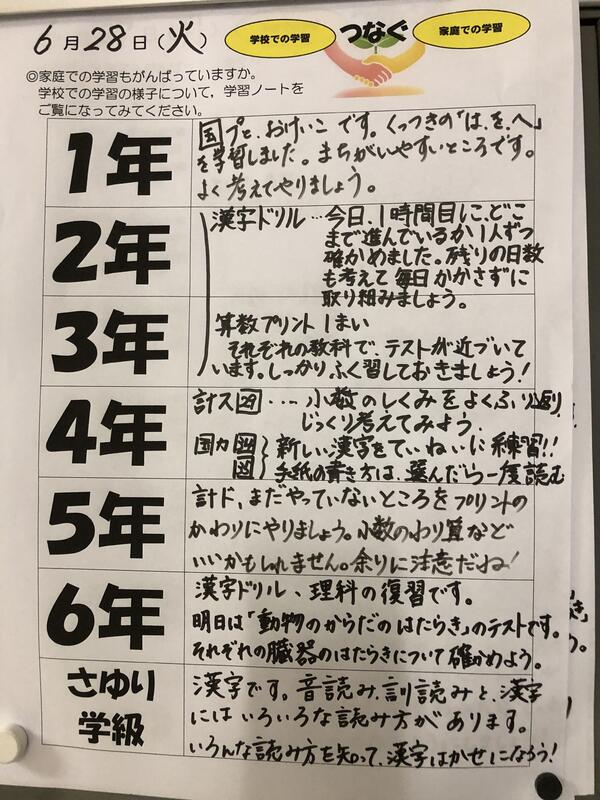 6月28日(火)
学校での学習
つなぐ
家庭での学習
◎家庭での学習もがんばっていますか。
学校での学習の様子について，学習ノートを
ご覧になってみてください。
1年
国プと、おけいこです。くっつきの「は、を、へ」
を学習しました。まちがいやすいところです。
よく考えてやりましょう。
2年
漢字ドリル…今日、1時間目に、どこ
まで進んでいるか1人ずつ
確かめました。残りの日数
も考えて毎日かかさずに
取り組みましょう。
3年
算数プリント1まい
それぞれの教科で、テストが近づいて
います。しっかりふく習しておきましょう!
4年
計ス….小数のしくみをよくふり返り
じっくり考えてみよう.
国カ
新しい漢字をていねいに練習!!
手紙の書き方は、選んだら一度読む
5年
計ド、まだやっていないところをプリントの
かわりにやりましょう。小数のわり算など
いいかもしれません。余りに注意だね!
6年
漢字ドリル、理科の復習です。
明日は「動物のからだのはたらき」のテストです。
それぞれの臓器のはたらきについて確かめよう。
さゆり
学級
漢字です。音読み、訓読みと、漢字
にはいろいろな読み方があります。
いろんな読み方を知って、漢字はかせになろう!